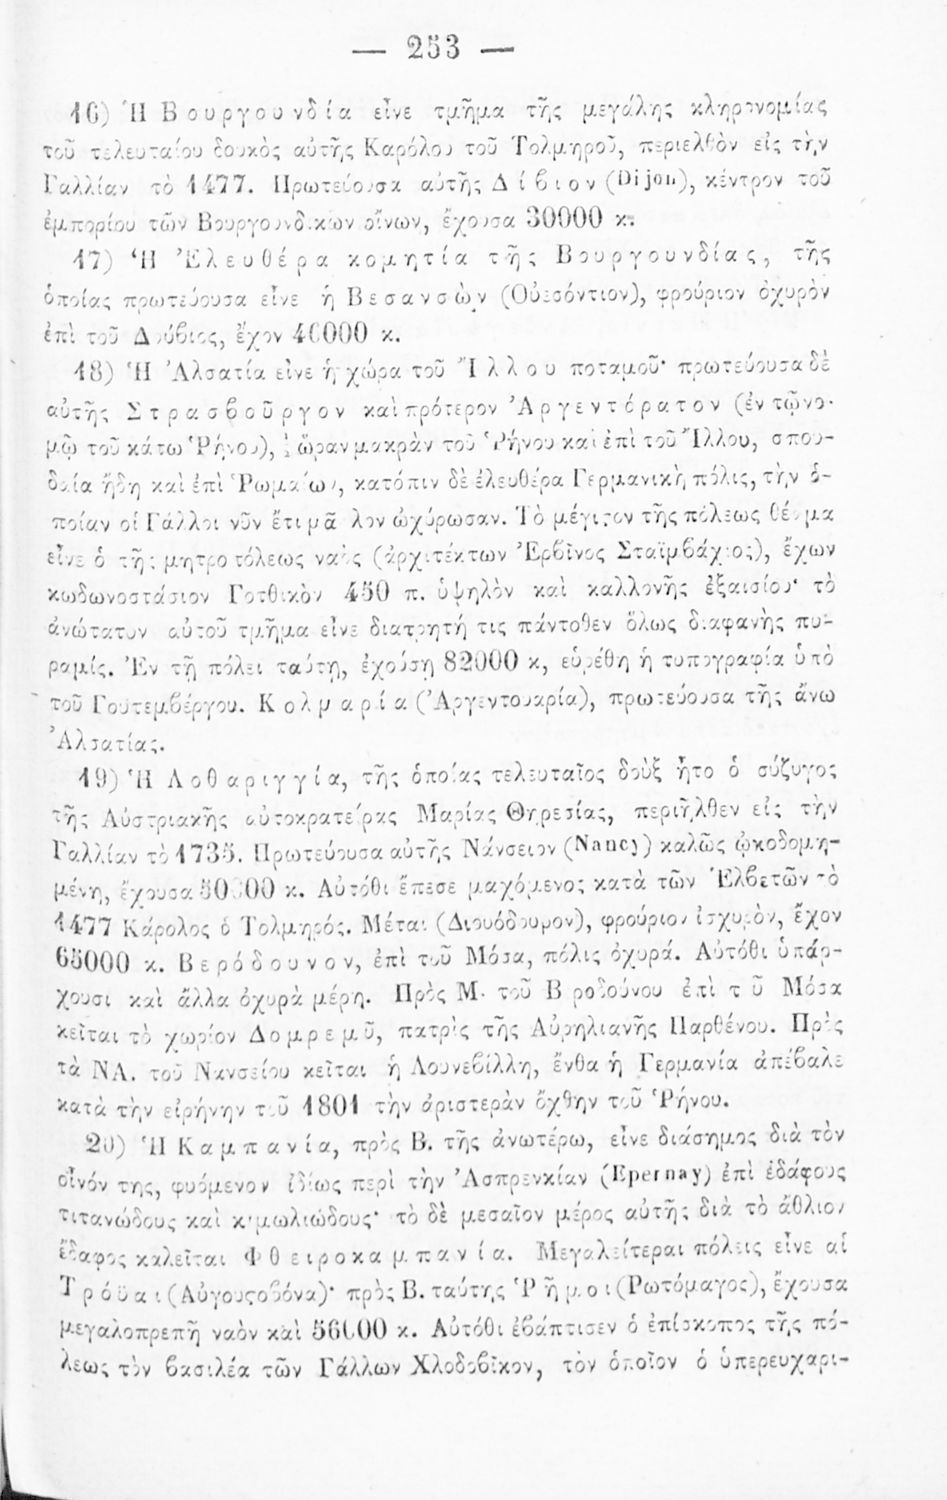 — 253 —
16) Ἡ Βουργουνδία εἶνε τμῆμα τῆς μεγάλης κληρονομίας
τοῦ τελευταίου δουκὸς αὐτῆς Καρόλου τοῦ Τολμηροῦ, περιελθὸν εἰς τὴν
Γαλλίαν τὸ 1477. Πρωτεύουσα αὐτῆς Δίβιον (Dijon), κέντρον τοῦ
ἐμπορίου τῶν Βουργουνδικῶν οἴνων, ἔχουσα 30000 κ.
17) Ἡ Ἐλευθέρα κομητία τῆς Βουργουνδίας, τῆς
ὁποίας πρωτεύουσα εἶνε ἡ Βεσανσὼν (Οὐεσόντιον), φρούριον ὀχυρὸν
ἐπὶ τοῦ Δούβιος, ἔχον 40000 κ.
18) Ἡ Ἀλσατία εἶνε ἡ χώρα τοῦ Ἴλλου ποταμοῦ· πρωτεύουσα δὲ
αὐτῆς Στρασβοῦργον καὶ πρότερον Ἀργεντόρατον (ἐν τῷ νο-
μῷ τοῦ κάτω Ῥήνου), ὥραν μακρὰν τοῦ Ῥήνου καὶ ἐπὶ τοῦ Ἴλλου, σπου-
δαία ἤδη καὶ ἐπὶ Ῥωμαίων, κατόπιν δὲ ἐλευθέρα Γερμανικὴ πόλις, τὴν ὁ-
ποίαν οἱ Γάλλοι νῦν ἔτι μᾶλλον ὠχύρωσαν. Τὸ μέγιστον τῆς πόλεως θέαμα
εἶνε ὁ τῆς μητροπόλεως ναὸς (ἀρχιτέκτων Ἐρβῖνος Σταϊμβάχιος), ἔχων
κωδωνοστάσιον Γοτθικὸν 450 π. ὑψηλὸν καὶ καλλονῆς ἐξαισίου· τὸ
ἀνώτατον αὐτοῦ τμῆμα εἶνε διατρητή τις πάντοθεν ὅλως διαφανὴς πυ-
ραμίς. Ἐν τῇ πόλει ταύτῃ, ἐχούσῃ 82000 κ, εὑρέθη ἡ τυπογραφία ὑπὸ
τοῦ Γουτεμβέργου. Κολμαρία (Ἀργεντουαρία), πρωτεύουσα τῆς ἄνω
Ἀλσατίας.
19) Ἡ Λοθαριγγία, τῆς ὁποίας τελευταῖος δοὺξ ἦτο ὁ σύζυγος
τῆς Αὐστριακῆς αὐτοκρατείρας Μαρίας Θηρεσίας, περιῆλθεν εἰς τὴν
Γαλλίαν τὸ 1735. Πρωτεύουσα αὐτῆς Νάνσειον (Nancy) καλῶς ᾠκοδομη-
μένη, ἔχουσα 50000 κ. Αὐτόθι ἔπεσε μαχόμενος κατὰ τῶν Ἑλβετῶν τὸ
1477 Κάρολος ὁ Τολμηρός. Μέται (Διουόδουρον), φρούριον ἰσχυρὸν, ἔχον
65000 κ. Βερόδουνον, ἐπὶ τοῦ Μόσα, πόλις ὀχυρά. Αὐτόθι ὑπάρ-
χουσι καὶ ἄλλα ὀχυρὰ μέρη. Πρὸς Μ. τοῦ Βεροδούνου ἐπὶ τοῦ Μόσα
κεῖται τὸ χωρίον Δομρεμῦ, πατρὶς τῆς Αὐρηλιανῆς Παρθένου. Πρὸς
τὰ ΝΑ. τοῦ Νανσείου κεῖται ἡ Λουνεβίλλη, ἔνθα ἡ Γερμανία ἀπέβαλε
κατὰ τὴν εἰρήνην τοῦ 1801 τὴν ἀριστερὰν ὄχθην τοῦ Ῥήνου.
20) Ἡ Καμπανία, πρὸς Β. τῆς ἀνωτέρω, εἶνε διάσημος διὰ τὸν
οἶνόν της, φυόμενον ἰδίως περὶ τὴν Ἀσπρενκίαν (Epernay) ἐπὶ ἐδάφους
τιτανώδους καὶ κιμωλιώδους· τὸ δὲ μεσαῖον μέρος αὐτῆς διὰ τὸ ἄθλιον
ἔδαφος καλεῖται Φθειροκαμπανία. Μεγαλείτεραι πόλεις εἶνε αἱ
Τρόϋαι (Αὐγουστοβόνα)· πρὸς Β. ταύτης Ῥῆμοι (Ρωτόμαγος), ἔχουσα
μεγαλοπρεπῆ ναὸν καὶ 56000 κ. Αὐτόθι ἐβάπτισεν ὁ ἐπίσκοπος τῆς πό-
λεως τὸν βασιλέα τῶν Γάλλων Χλοδοβῖκον, τὸν ὁποῖον ὁ ὑπερευχαρι-